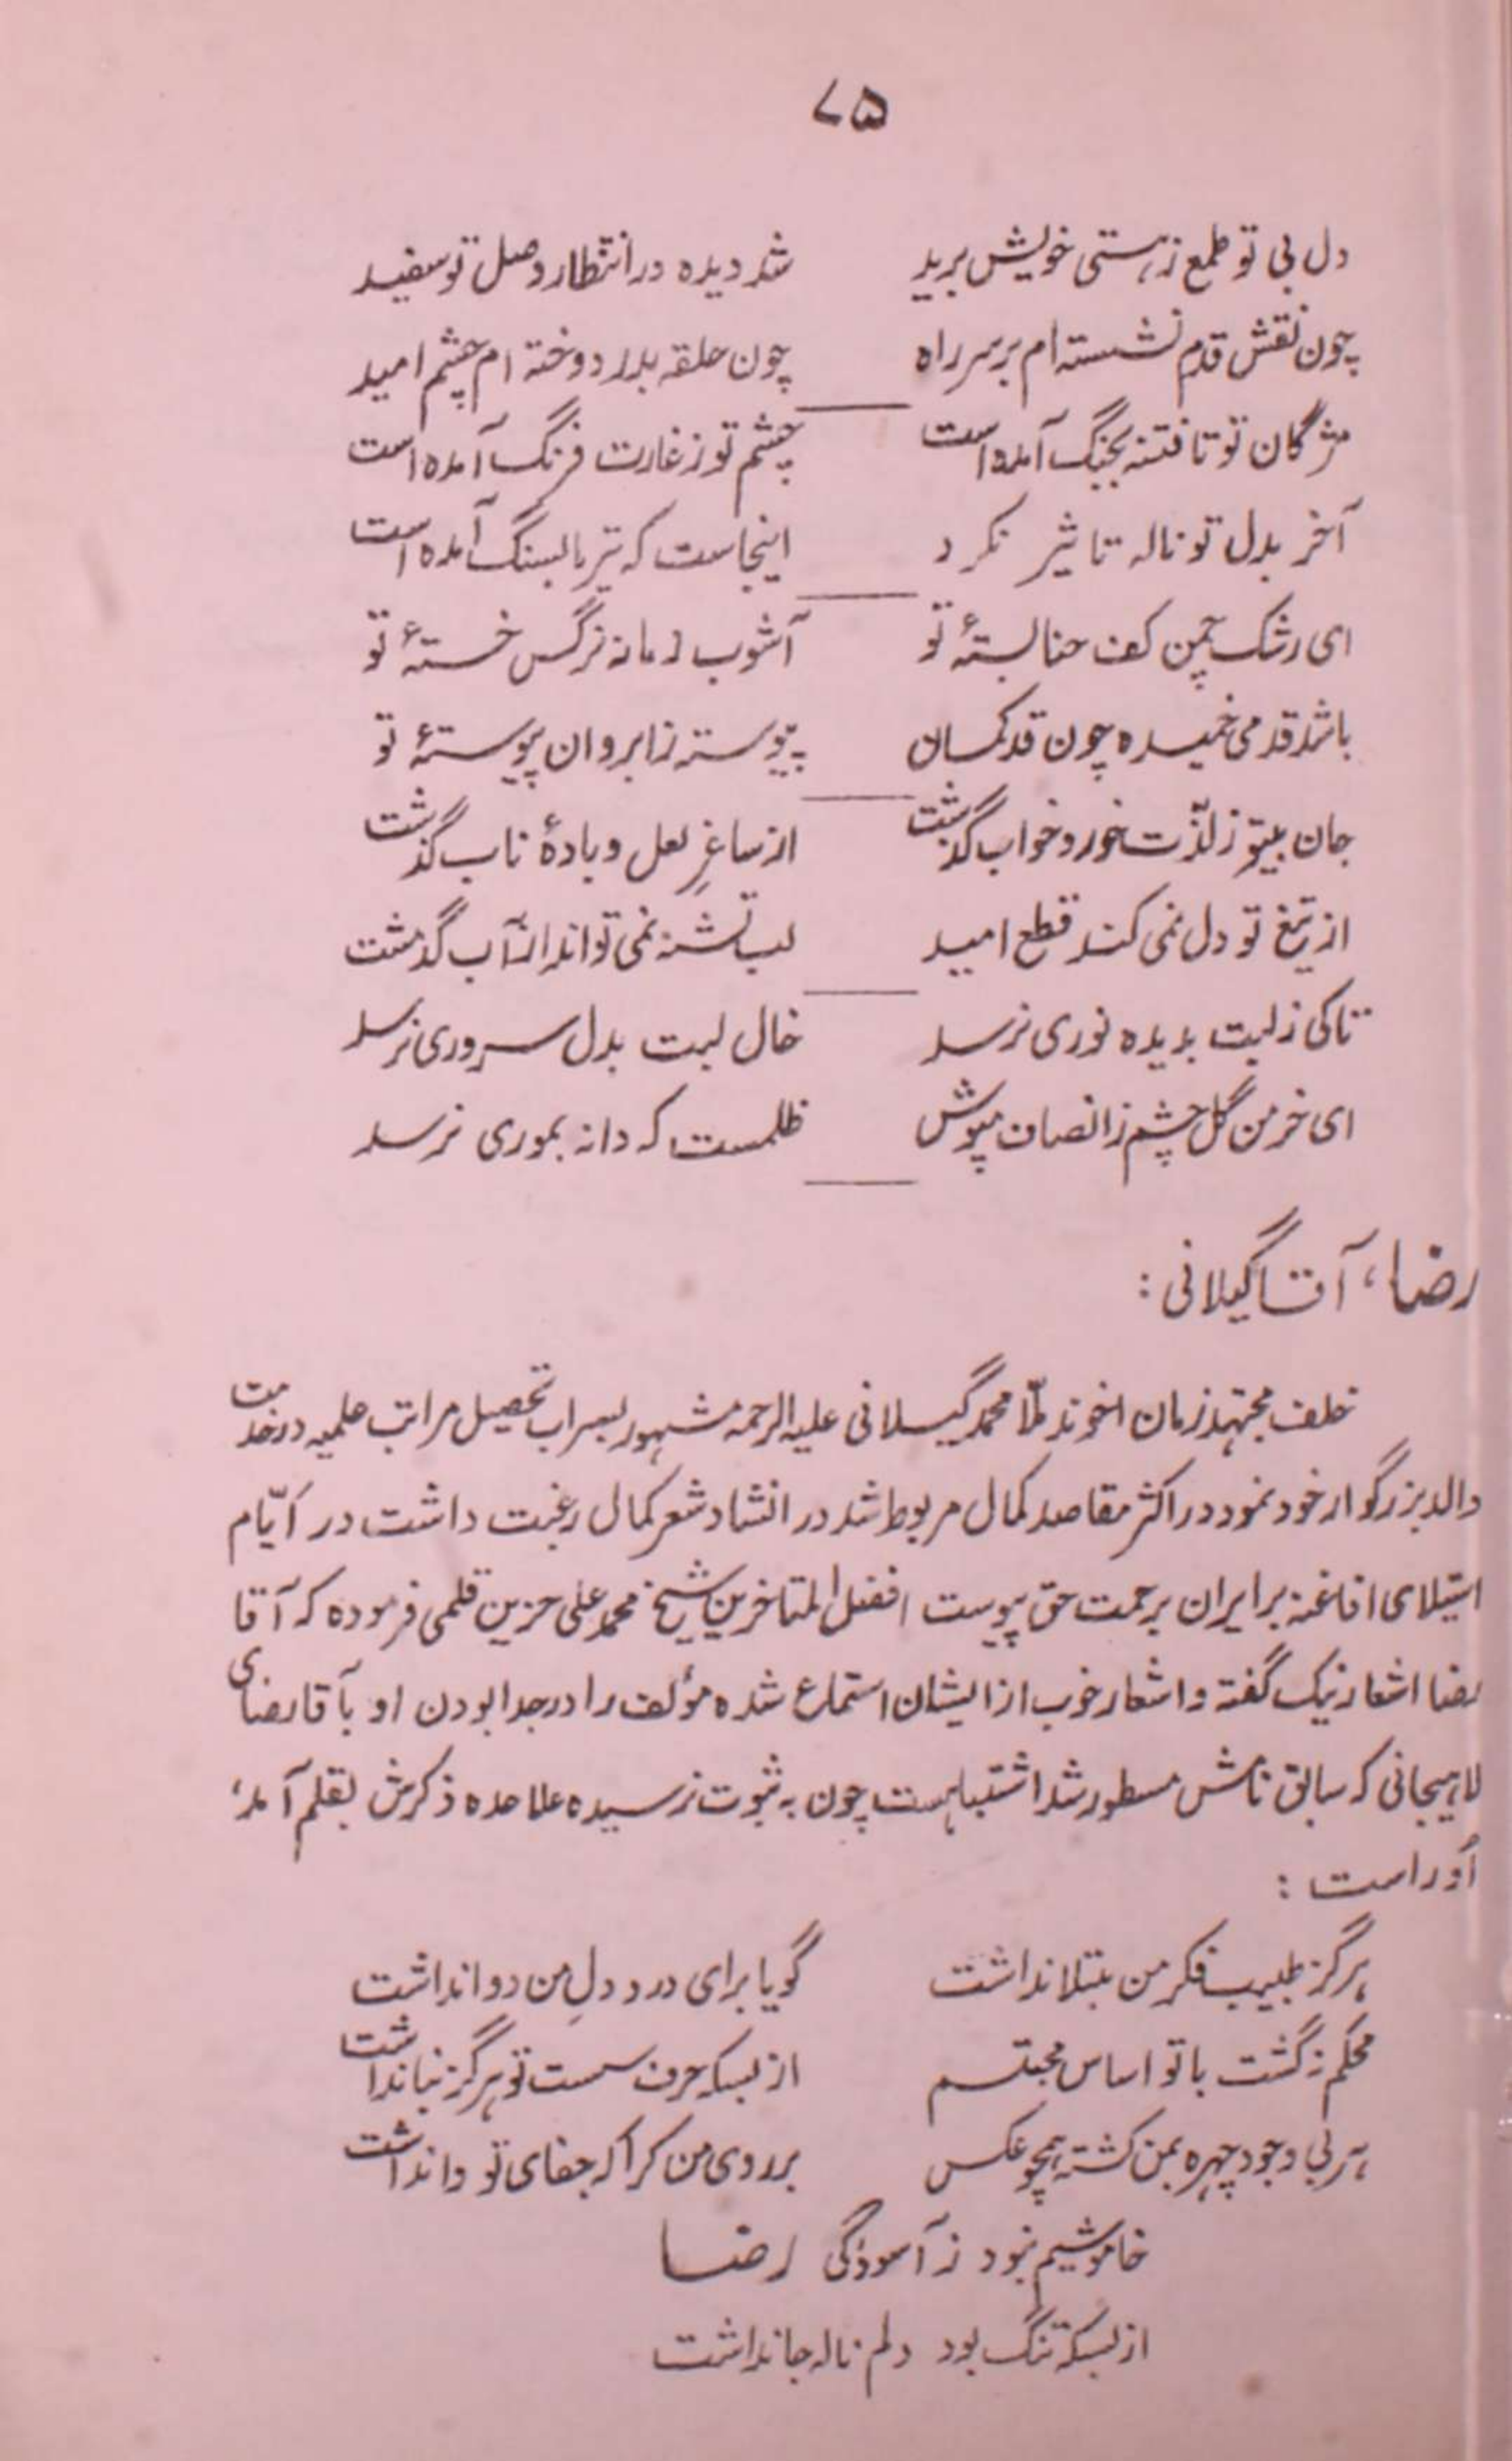 ۷۵
دل بی تو طمع ز هستی خویش برید    شد دیده در انتظار وصل تو سفید
چون نقش قدم نشسته ام بر سر راه    چون حلقه بدر دوخته ام چشم امید
مژگان تو تا فتنه بجنگ آمده است    چشم تو ز غارت فرنگ آمده است
آخر بدل تو ناله تاثیر نکرد    اینجاست که تیر ما بسنگ آمده است
ای رشک چمن کف حنا بستهٔ تو    آشوب زمانه نرگس خستهٔ تو
باشد قد می خمیده چون قد کمان    پیوسته ز ابروان پیوستهٔ تو
جان بیتو ز لذّت خور و خواب گذشت    از ساغرِ لعل و بادهٔ ناب گذشت
از تیغ تو دل نمی کند قطع امید    لب تشنه نمی تواند از آب گذشت
تا کی ز لبت بدیده نوری نرسد    خال لبت بدل سروری نرسد
ای خرمن گل چشم ز انصاف مپوش    ظلمست که دانه بموری نرسد
رضا، آقا گیلانی :
خلف مجتهد زمان اخوند ملّا محمد گیلانی علیه الرحمه مشهور بسراب تحصیل مراتب علمیه در خدمت
والد بزرگوار خود نمود در اکثر مقاصد کمال مربوط شد در انشاد شعر کمال رغبت داشت در ایّام
استیلای افاغنه بر ایران برحمت حق پیوست افضل المتاخرین شیخ محمد علی حزین قلمی فرموده که آقا
رضا اشعار نیک گفته و اشعار خوب از ایشان استماع شده مؤلف را در جدا بودن او بآقا رضای
لاهیجانی که سابق نامش مسطور شد اشتباهست چون به ثبوت نرسیده علاحده ذکرش بقلم آمد،
اُو راست :
هرگز طبیب فکر من مبتلا نداشت    گویا برای درد دلِ من دوا نداشت
محکم نگشت با تو اساس محبتم    از بسکه حرف سست تو هرگز بنا نداشت
هر بی وجود چهره بمن گشته همچو عکس    بر روی من کرا که جفای تو وا نداشت
خاموشیم نبود ز آسودگی رضا
از بسکه تنگ بود دلم ناله جا نداشت